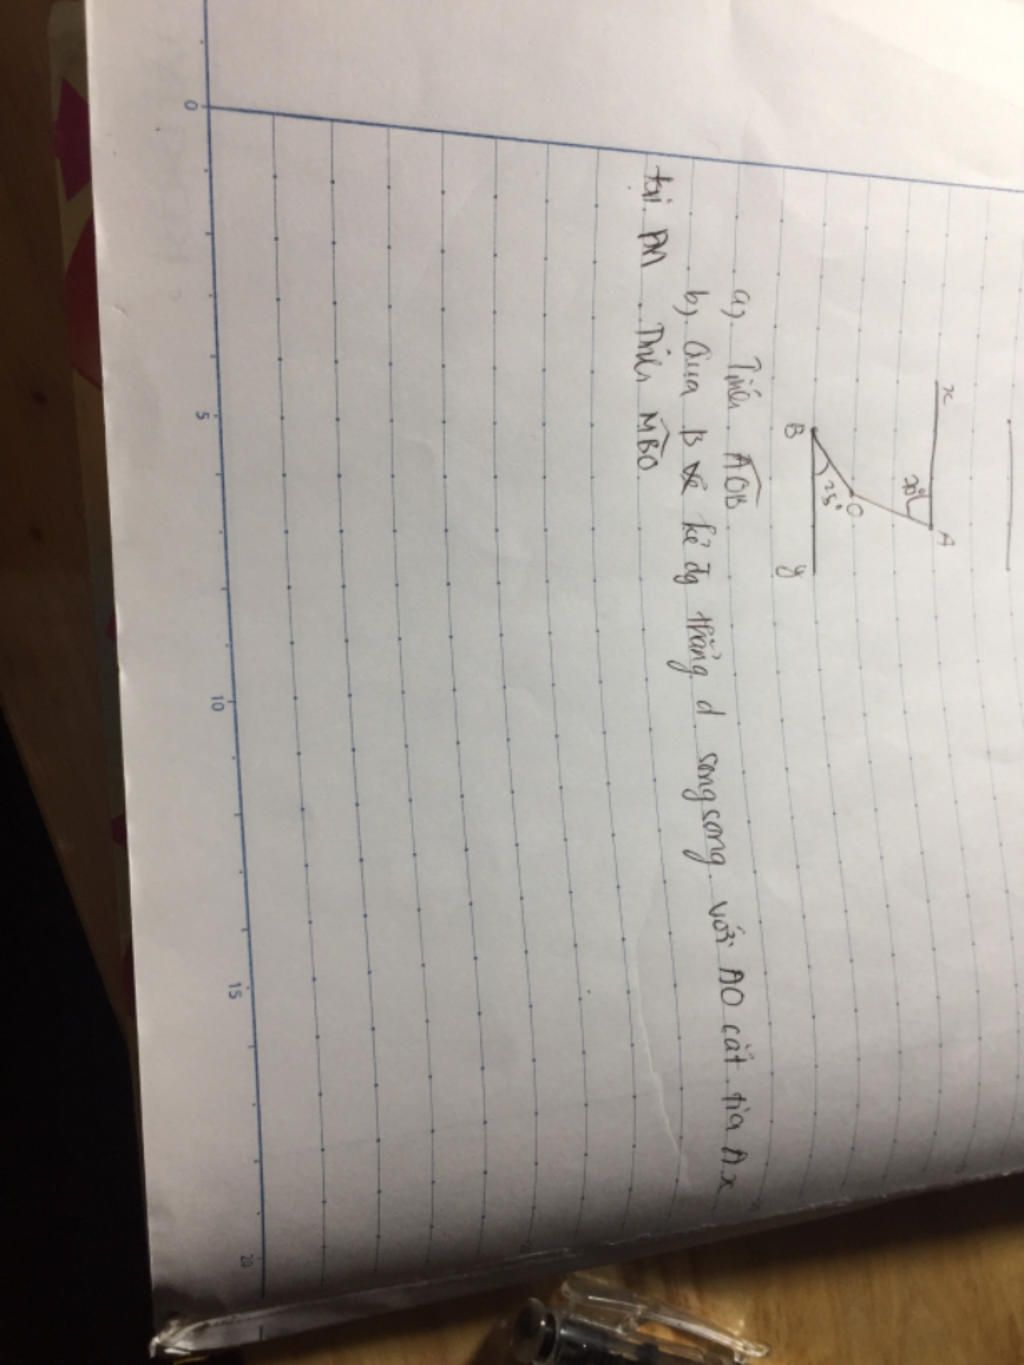 x
A
20°
O
25°
B
y
a, Tính AOB
b, Qua B kẻ đg thẳng d song song với AO cắt tia Ax
tại M. Tính MBO
0
5
10
15
20